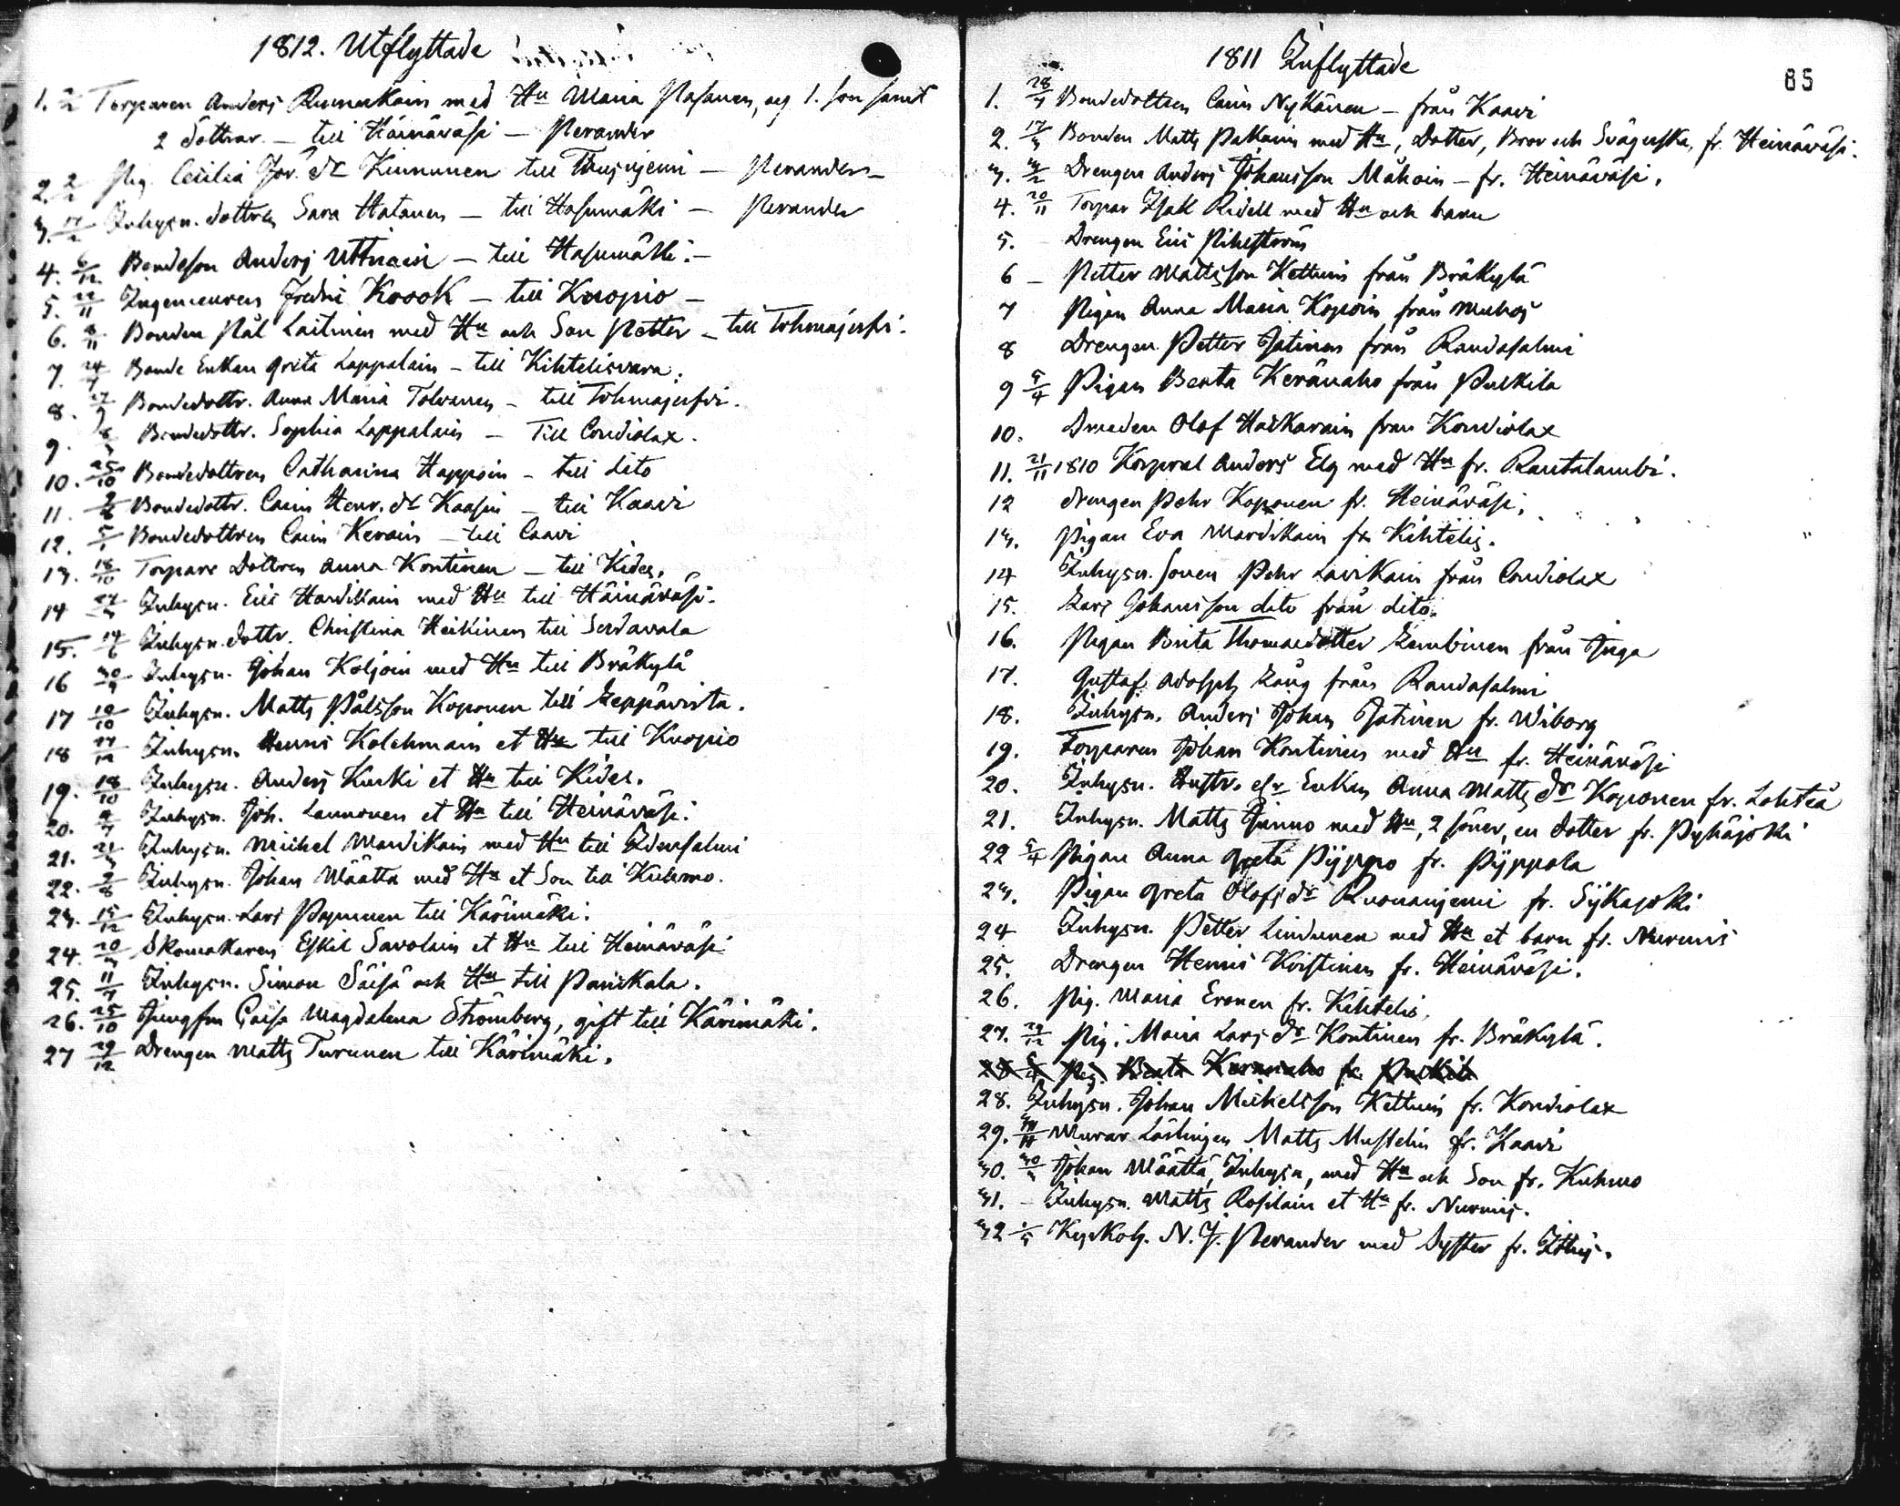 1812. Utflyttade
1. 2/2 Torparen Anders Rumukain med Hu Maria Pasanen, og 1. son samt
2 döttrar. — till Häinäväsi — Perander
2. 2/2 Pig. Cecilia Jör. dr Kinnunen till — Perander —
3. 17/2 Inhysn. dottren Sara Hatanen — till Hasumäki — Perander
4. 6/12 Bondeson Anders Uttriain — till Hasumäki. —
5. 22/11 Ingenieuren Fredric Krook — till Kuopio —
6. 8/11 Bonden Pål Laitinen med Hu och Son Petter — till Tohmajerfvi.
7. 24/7 Bonde Enkan Greta Lappalain — till Kihtelisvara.
8. 27/9 Bondedottr. Anna Maria Tolvanen — till Tohmajerfvi.
9. Bondedottr. Sophia Lappalain — Till Condiolax.
10. 25/10 Bondedottren Catharina Happoin — till dito
11. Bondedottr. Carin Henr. dr Kaasin — till Kaavi
12. 5/1 Bondedottren Carin Kerain — till Caavi
13. 18/10 Torpare Dottren Anna Kontinen — till Kides.
14 27/3 Inhysn. Eric Hardikain med Hu till Häinäväsi.
15. 14/6 Inhysn. dottr. Christina Heikinen till Serdavala
16 30/9 Inhysn. Johan Koljoin med Hu till Bräkylä
17 10/10 Inhysn. Matts Pålsson Koponen till Leppävirta.
18 17/12 Inhysn. Henric Kolehmain et Hu till Kuopio
19. 18/10 Inhysn. Anders Kurki et Hu till Kides.
20. Inhysn. Joh. Lannonen et Hu till Heinäväsi.
21. 21/3 Inhysn. Michel Mardikain med Hu till Idensalmi
22. 2/8 Inhysn. Johan Määtta med Hu et Son till Kuhmo.
23. 15/12 Inhysn. Lars Pappinen till Kärimäki.
24. 20/3 Skomakaren Eskil Savolain et Hu till Heinäväsi
25. 11/7 Inhysn. Simon Säisä och Hu till Parikala.
26. 25/10 Jungfru Caisa Magdalena Strömberg, gift till Kärimäki.
27 29/12 Drengen Matts Turunen till Kärimäki.
85
1811 Inflyttade
1. 28/7 Bondedottren Carin Nykänen — från Kaavi
2. 17/3 Bonden Matts Pakain med Hu, Dotter, Bror och Svägerska, fr. Heinäväsi.
3. 3/2 Drengen Anders Johansson Måkoin — fr. Heinäväsi.
4. 20/11 Torpar Isak Ridell med Hu och barn
5. Drengen Eric Pihlström
6 — Petter Mattsson Kettuin från Bräkylä
7 Pigan Anna Maria Kopoin från Muhos
8 Drengen Petter Jatinen från Randasalmi
9 5/4 Pigan Beata Keränaho från Pulkila
10. Olof Harkarain från Kondiolax
11. 21/11 1810 Korporal Anders Elg med Hu fr. Rautalambi.
12 drengen Pehr Koponen fr. Heinäväsi.
13. Pigan Eva Mardikain fr Kihtelis.
14 Inhysn. Sonen Pehr Lavikain från Condiolax
15. Lars Johansson dito från dito.
16. Pigan Brita Thomasdotter Lembinen från Inga
17. Gustaf Adolph Lång från Randasalmi
18. Inhysn. Anders Johan Jatinen fr. Wiborg
19. Torparen Johan Kontinen med Hu fr. Heinäväsi
20. Inhysn. Hustr. elr Enkan Anna Matts dr Koponen fr. Lohteå
21. Inhysn. Matts Juuno med Hu, 2 söner, en dotter fr. Pyhäjoki
22 5/4 Pigan Anna Greta Pijppo fr. Pijppola
23. Pigan Greta Olofs dr Ruonanjemi fr. Sijkajoki
24 Inhysn. Petter Lindunen med Hu et barn fr. Nurmis
25. Drengen Henric Kristinen fr. Heinäväsi.
26. Pig. Maria Eronen fr. Kihtelis.
27. 29/12 Pig. Maria Lars dr Kontinen fr. Bräkylä.
28 5/4 Pig. Beata Keränaho fr. Pulkila
28. Inhysn. Johan Michelsson Kettuin fr. Kondiolax
29. Murar Lärlingen Matts Mustelin fr. Kaavi
30. 30/3 Johan Määttä, Inhysn, med Hu och Son fr. Kuhmo
31. — Inhysn. Matts Rosilain et Hu fr. Nurmis.
32 1/5 Kyrkoh. N. J. Perander med Syster fr. Ithis.